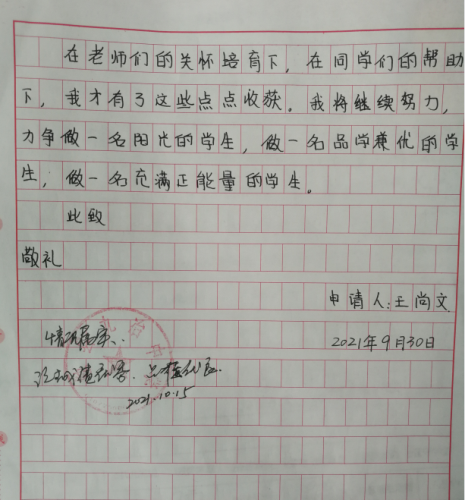 在老师们的关怀培育下，在同学们的帮助
下，我才有了这些点点收获。我将继续努力，
力争做一名阳光的学生，做一名品学兼优的学
生；做一名充满正能量的学生。
此致
敬礼
申请人：王尚文
情况属实.
2021年9月30日
2021.10.15